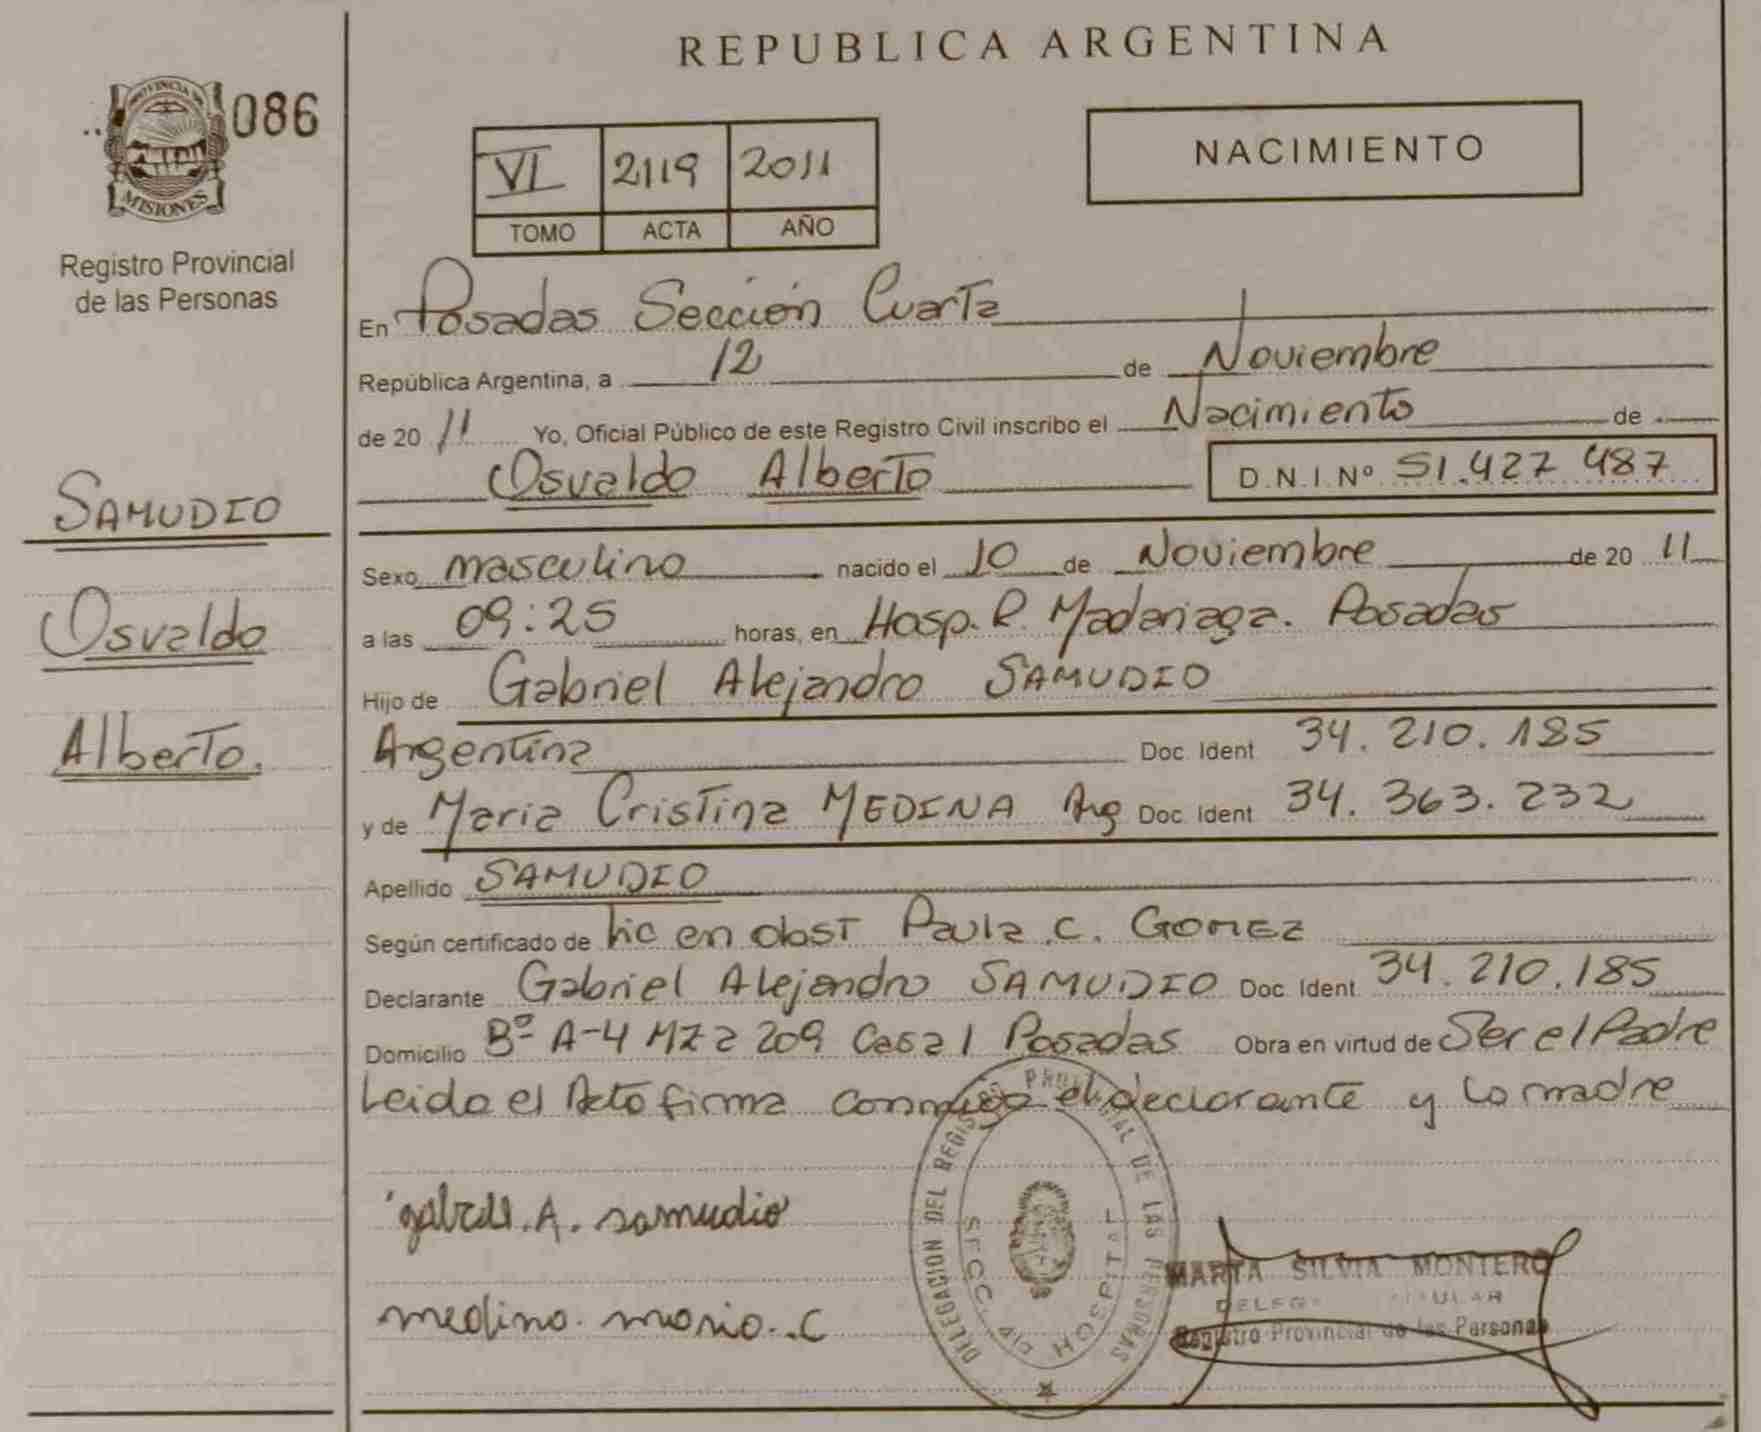 REPUBLICA ARGENTINA
PROVINCIA DE
MISIONES
086
Registro Provincial
de las Personas
VI 2119 2011
TOMO ACTA AÑO
NACIMIENTO
En Posadas Sección Cuarta
República Argentina, a 12 de Noviembre
de 2011 Yo, Oficial Público de este Registro Civil inscribo el Nacimiento de
Osvaldo Alberto D.N.I.Nº 51.427 487
SAMUDIO
Osvaldo
Alberto.
Sexo masculino nacido el 10 de Noviembre de 2011
a las 09:25 horas, en Hosp. R. Madariaga. Posadas
Hijo de Gabriel Alejandro SAMUDIO
Argentina Doc. Ident 34.210.185
y de Maria Cristina MEDINA Arg Doc. Ident 34.363.232
Apellido SAMUDIO
Según certificado de Lic en obst Paula C. GOMEZ
Declarante Gabriel Alejandro SAMUDIO Doc. Ident 34.210.185
Domicilio Bº A-4 MZ 2 209 Casa 1 Posadas Obra en virtud de Ser el Padre
Leida el Acto firma conmigo el declarante y la madre
DELEGACION DEL REGISTRO PROVINCIAL DE LAS PERSONAS
SECC. 4ta HOSPITAL
A. samudio
medina. maria. C
MARTA SILVIA MONTERO
Registro Provincial de las Personas